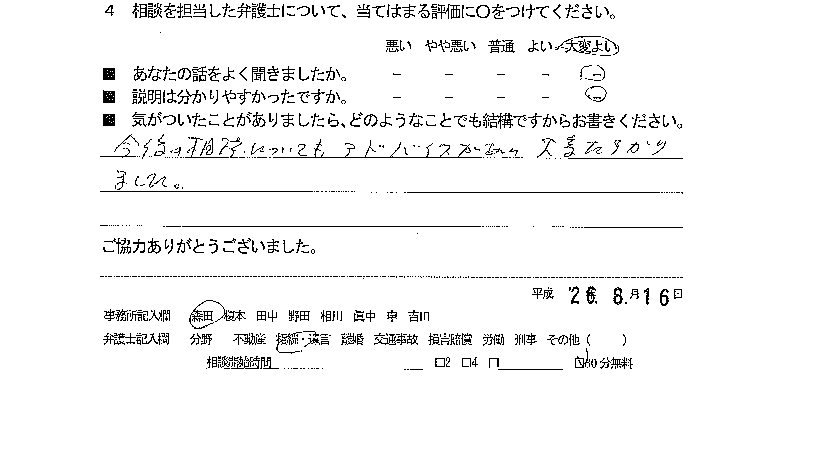 4 相談を担当した弁護士について、当てはまる評価に○をつけてください。
悪い やや悪い 普通 よい 大変よい
■ あなたの話をよく聞きましたか。 － － － － －
■ 説明は分かりやすかったですか。 － － － － －
■ 気がついたことがありましたら、どのようなことでも結構ですからお書きください。
今後の相談についても アドバイスがあり 大変たすかり
ました。
ご協力ありがとうございました。
平成 26. 8.月16日
事務所記入欄 森田 榎本 田中 野田 相川 眞中 東 吉川
弁護士記入欄 分野 不動産 相続・遺言 離婚 交通事故 損害賠償 労働 刑事 その他（ ）
相談開始時間 □2 □4 □ 30分無料